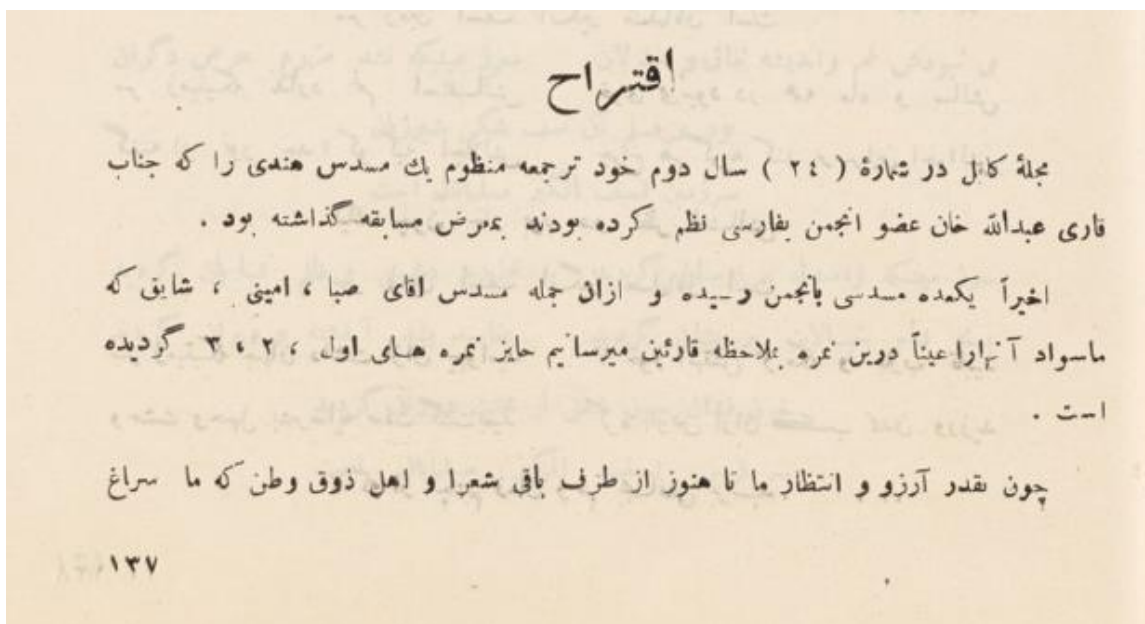 اقتراح
مجلهٔ کابل در شمارهٔ ( ٢٤ ) سال دوم خود ترجمعه منظوم يك مسدس هندی را که جناب
قاری عبدالله خان عضو انجمن بفارسی نظم کرده بودند بمعرض مسابقه گذاشته بود .
اخیراً یکعده مسدسی بانجمن رسیده و ازان جمله مسدس اقای صبا ، امینی ، شایق که
ماسواد آنهارا عیناً درین نمره بملاحظه قارئین میرسانیم حایز نمره های اول ، ٢ ، ٣ گردیده
است .
چون بقدر آرزو و انتظار ما تا هنوز از طرف باقی شعرا و اهل ذوق وطن که ما سراغ
١٣٧